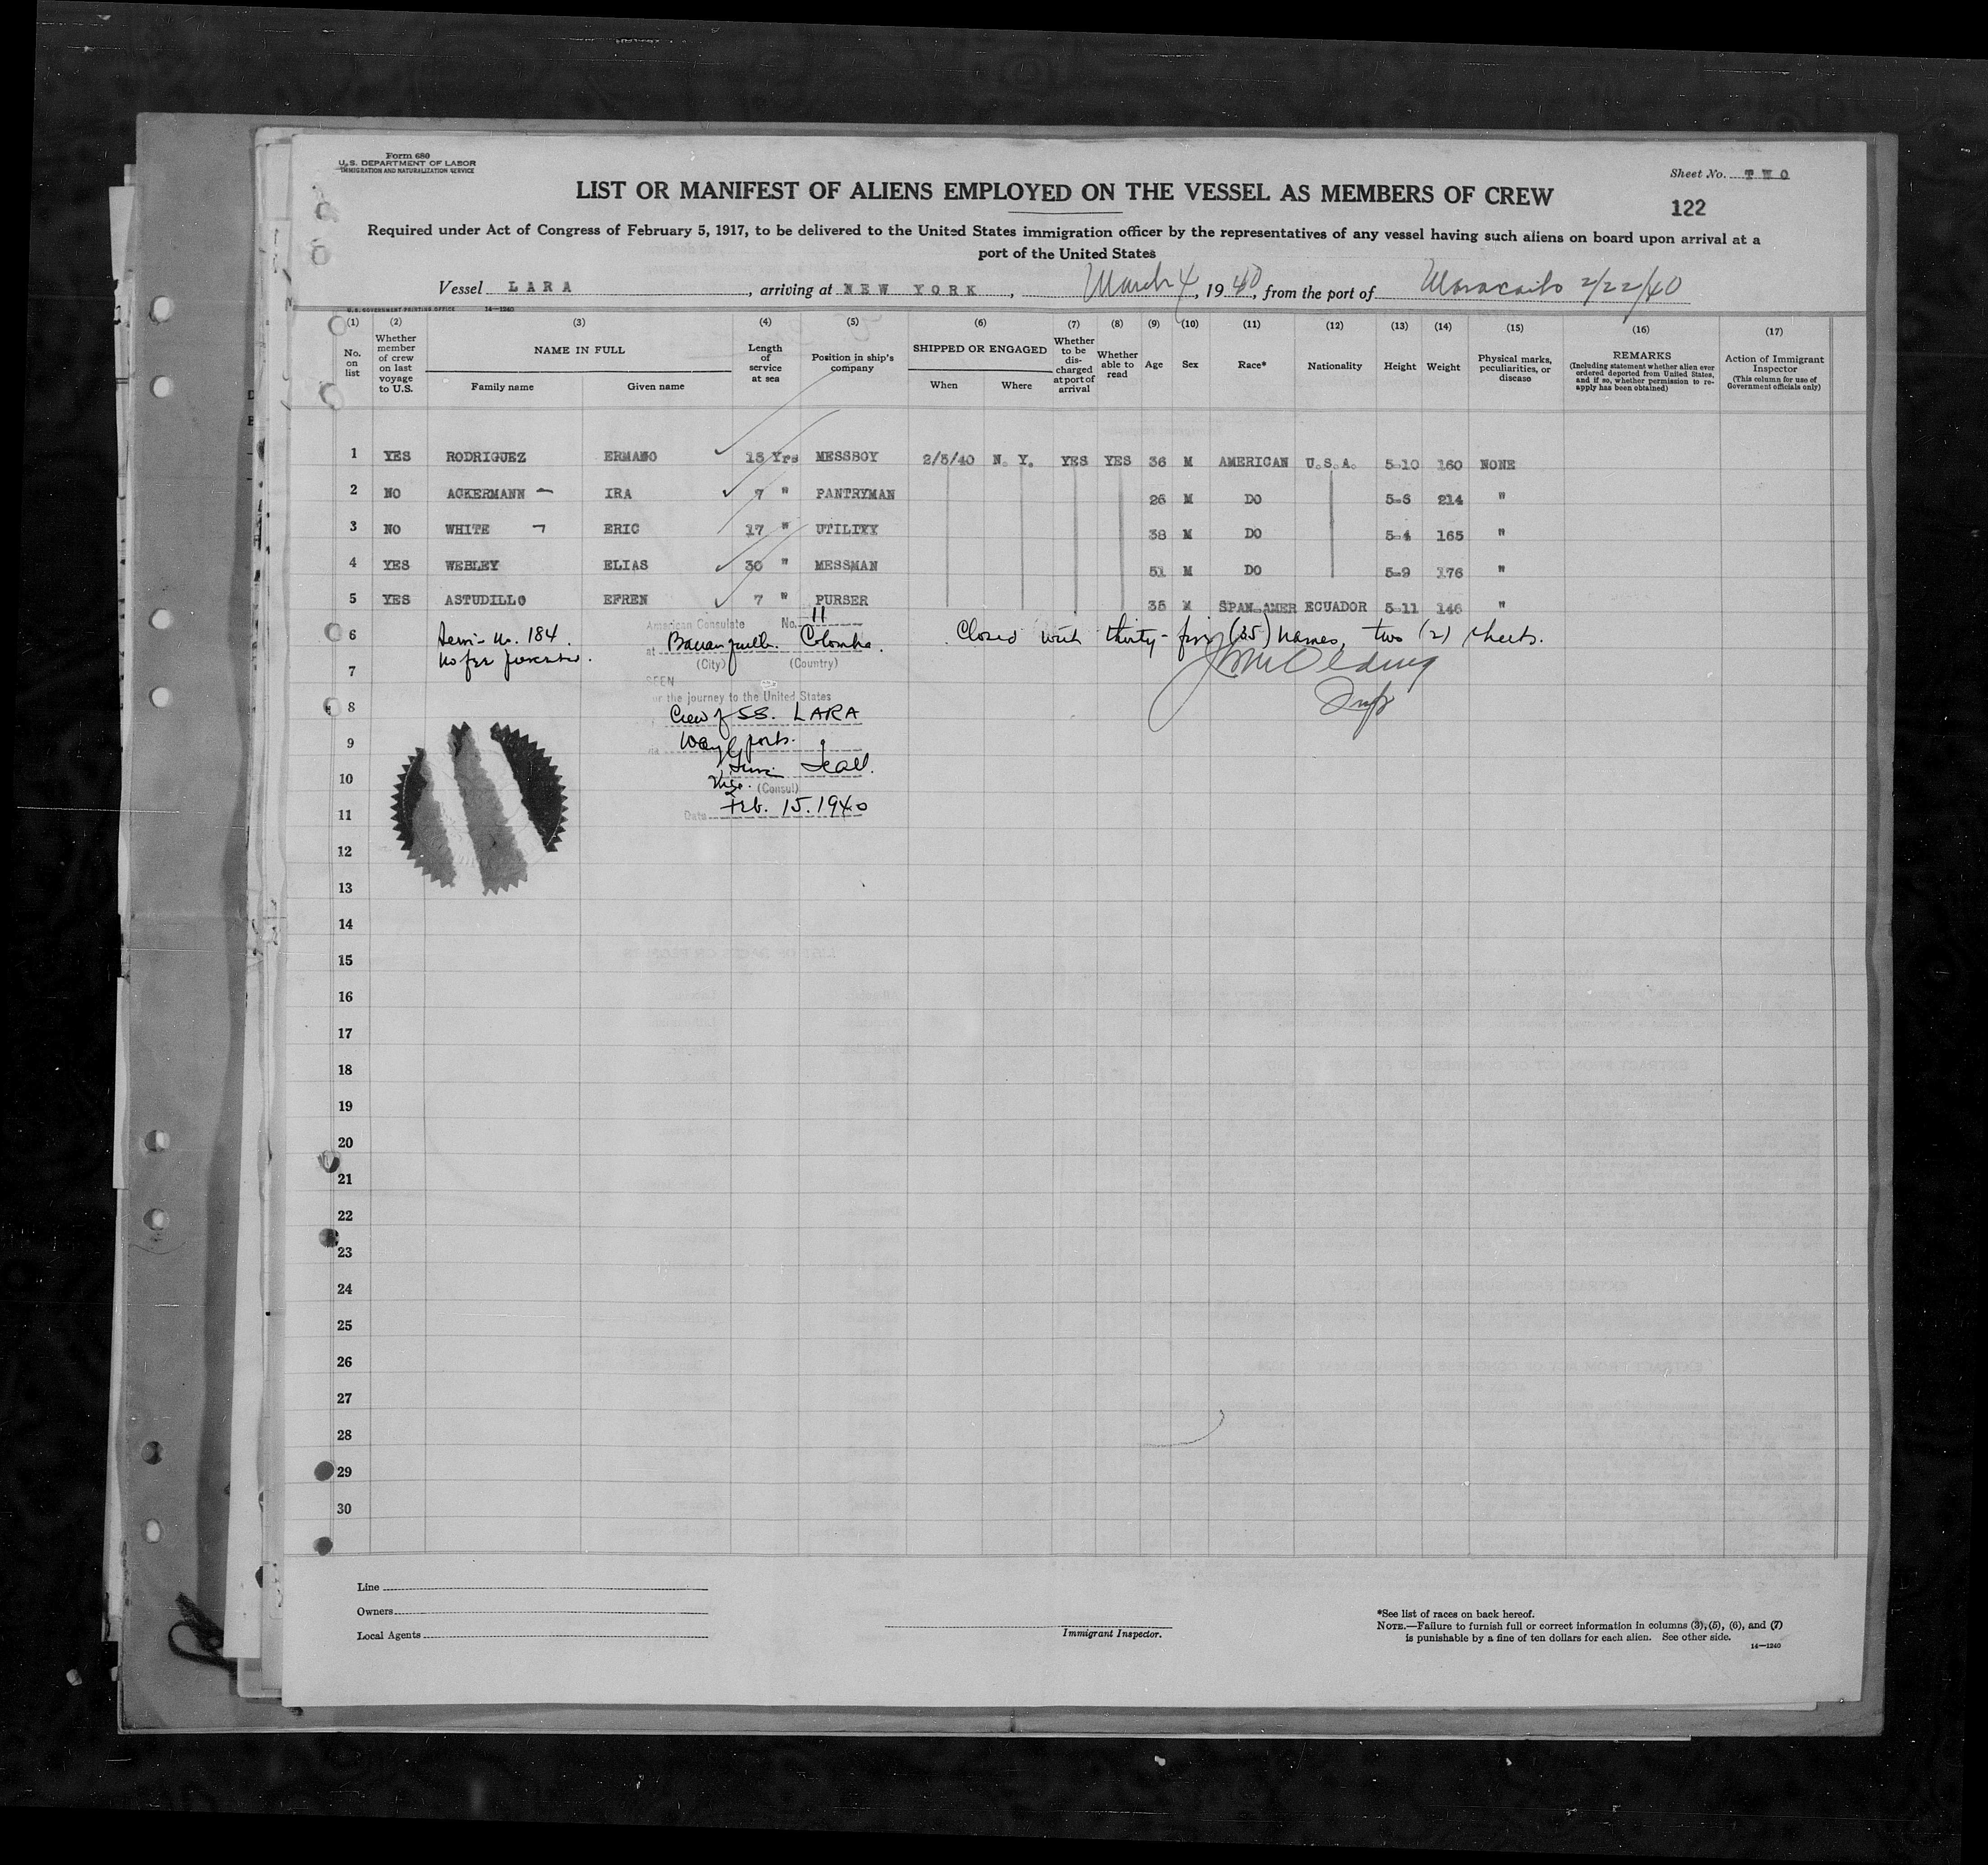 Form 680
U. S. DEPARTMENT OF LABOR
IMMIGRATION AND NATURALIZATION SERVICE
Sheet No. TWO
122
LIST OR MANIFEST OF ALIENS EMPLOYED ON THE VESSEL AS MEMBERS OF CREW
Required under Act of Congress of February 5, 1917, to be delivered to the United States immigration officer by the representatives of any vessel having such aliens on board upon arrival at a
port of the United States
Vessel LARA, arriving at NEW YORK, March 4, 1940, from the port of Maracaibo 2/22/40
U. S. GOVERNMENT PRINTING OFFICE 14—1240
(1) (2) (3) (4) (5) (6) (7) (8) (9) (10) (11) (12) (13) (14) (15) (16) (17)
No. on list
Whether member of crew on last voyage to U.S.
NAME IN FULL
Family name Given name
Length of service at sea
Position in ship's company
SHIPPED OR ENGAGED
When Where
Whether to be discharged at port of arrival
Whether able to read
Age Sex Race* Nationality Height Weight
Physical marks, peculiarities, or disease
REMARKS
(Including statement whether alien ever ordered deported from United States, and if so, whether permission to reapply has been obtained)
Action of Immigrant Inspector
(This column for use of Government officials only)
1 YES RODRIGUEZ ERMANO 18 Yrs MESSBOY 2/5/40 N. Y. YES YES 36 M AMERICAN U.S.A. 5-10 160 NONE
2 NO ACKERMANN IRA 7 " PANTRYMAN 26 M DO 5-6 214 "
3 NO WHITE ERIC 17 " UTILITY 38 M DO 5-4 165 "
4 YES WEBLEY ELIAS 30 " MESSMAN 51 M DO 5-9 176 "
5 YES ASTUDILLO EFREN 7 " PURSER 35 M SPAN.AMER ECUADOR 5-11 146 "
6
No. 184.
No fee
American Consulate No. 11
at Barranquilla, Colombia.
(City) (Country)
Closed with thirty-five (35) names, two (2) sheets.
7
SEEN
for the journey to the United States
8
Crew of SS. LARA
9
Way ports.
10
Vice (Consul)
11
Date Feb. 15, 1940
12
13
14
15
16
17
18
19
20
21
22
23
24
25
26
27
28
29
30
Line
Owners
Local Agents
Immigrant Inspector.
*See list of races on back hereof.
NOTE.—Failure to furnish full or correct information in columns (3), (5), (6), and (7)
is punishable by a fine of ten dollars for each alien. See other side. 14—1240